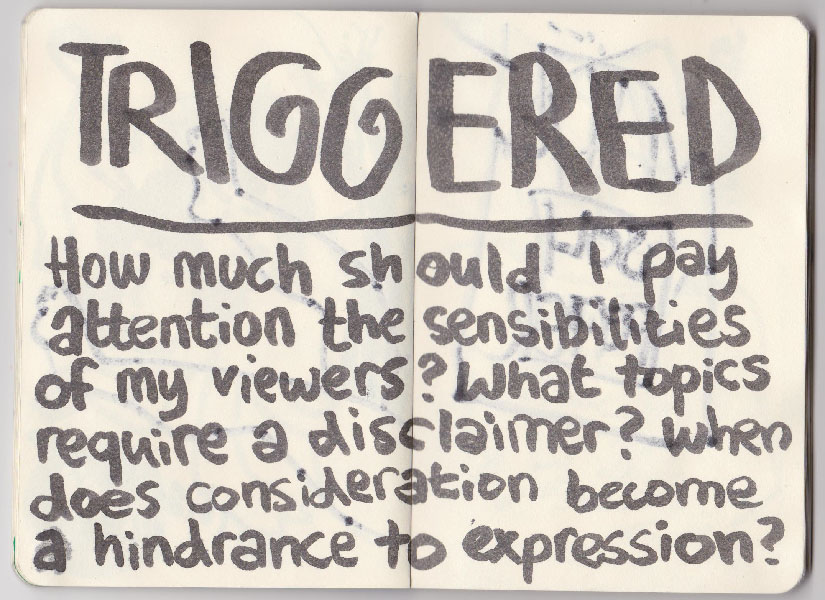 TRIGGERED
How much should I pay
attention the sensibilities
of my viewers? What topics
require a disclaimer? When
does consideration become
a hindrance to expression?